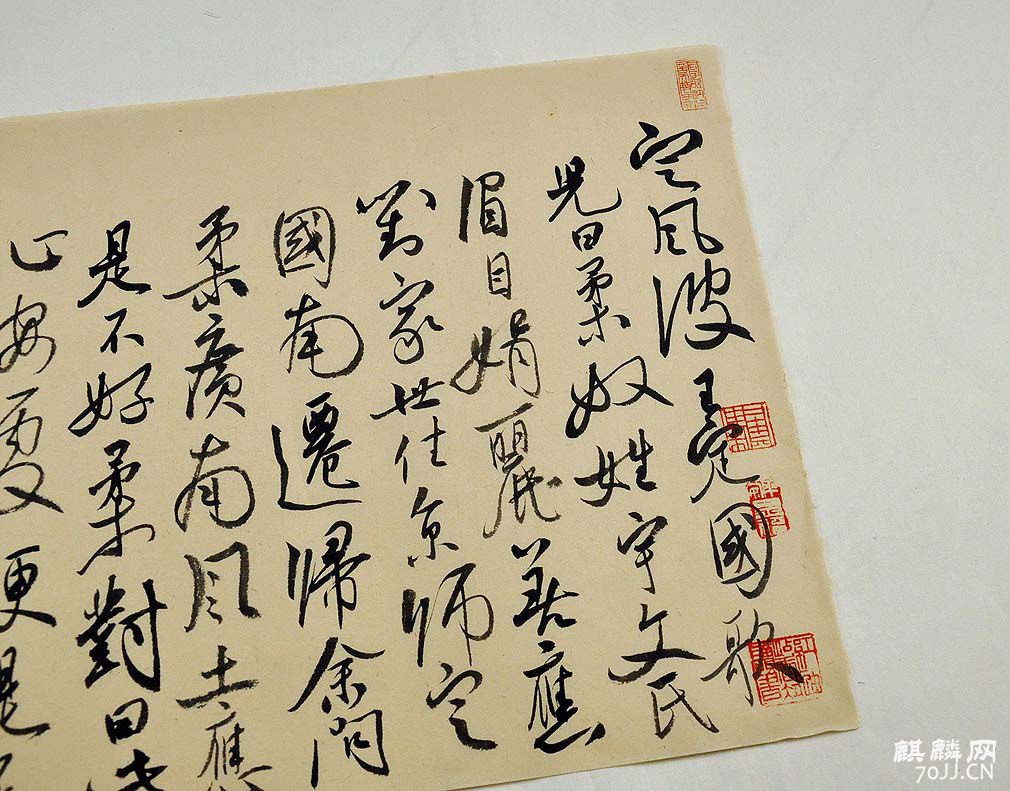 定風波王定國歌
兒曰柔奴姓宇文氏
眉目娟麗善應
對家世住京師定
國南遷歸余問
柔廣南風土應
是不好柔對曰此
心安處更是
麒麟网
70JJ.CN